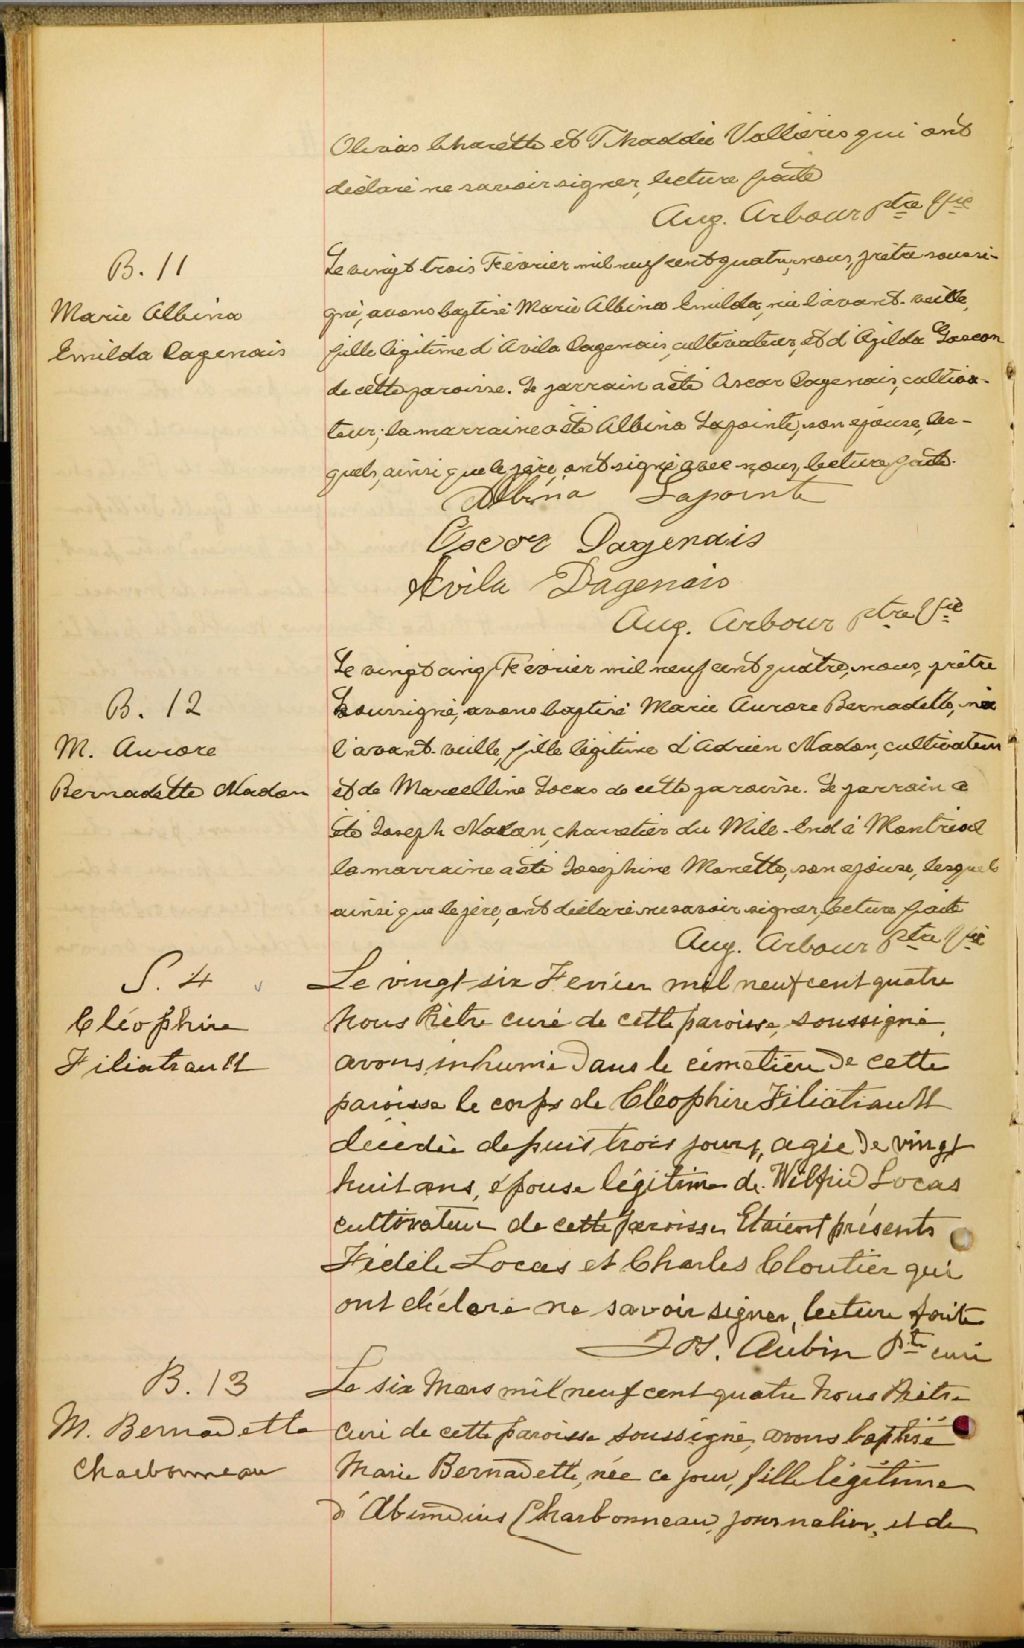 Olivias Charette et Thaddée Vallières qui ont
déclaré ne savoir signer, lecture faite
Aug. Arbour Ptre
B. 11
Marie Albina
Emilda Dagenais
Le vingt trois Février mil neuf cent quatre, nous, prêtre soussi-
gné, avons baptisé Marie Albina Emilda, née l'avant-veille,
fille légitime d'Avila Dagenais, cultivateur, et d'Azilda Gascon
de cette paroisse. Le parrain a été Oscar Dagenais, cultiva-
teur; la marraine a été Albina Lapointe, son épouse, les-
quels, ainsi que le père, ont signé avec nous, lecture faite.
Albina Lapointe
Oscar Dagenais
Avila Dagenais
Aug. Arbour ptre
B. 12
M. Aurore
Bernadette Nadon
Le vingt cinq Février mil neuf cent quatre, nous, prêtre
soussigné, avons baptisé Marie Aurore Bernadette, née
l'avant-veille, fille légitime d'Adrien Nadon, cultivateur
et de Marcelline Locas de cette paroisse. Le parrain a
été Joseph Nadon, charretier du Mile-End à Montréal
la marraine a été Joséphine Monette, son épouse, lesquels
ainsi que le père, ont déclaré ne savoir signer, lecture faite
Aug. Arbour Ptre
S. 4
Cléophire
Filiatrault
Le vingt-six Fevrier mil neuf cent quatre
Nous Prêtre curé de cette paroisse, soussigné,
avons inhumé dans le cimetière de cette
paroisse le corps de Cléophire Filiatrault
décédée depuis trois jours, agée de vingt
huit ans, épouse légitime de Wilfrid Locas
cultivateur de cette paroisse Etaient présents
Fidèle Locas et Charles Cloutier qui
ont déclaré ne savoir signer, lecture faite
Jos. Aubin Ptre curé
B. 13
M. Bernadette
Charbonneau
Le six Mars mil neuf cent quatre Nous Prêtre
curé de cette paroisse soussigné, avons baptisé
Marie Bernadette, née ce jour, fille légitime
d' Charbonneau, journalier, et de